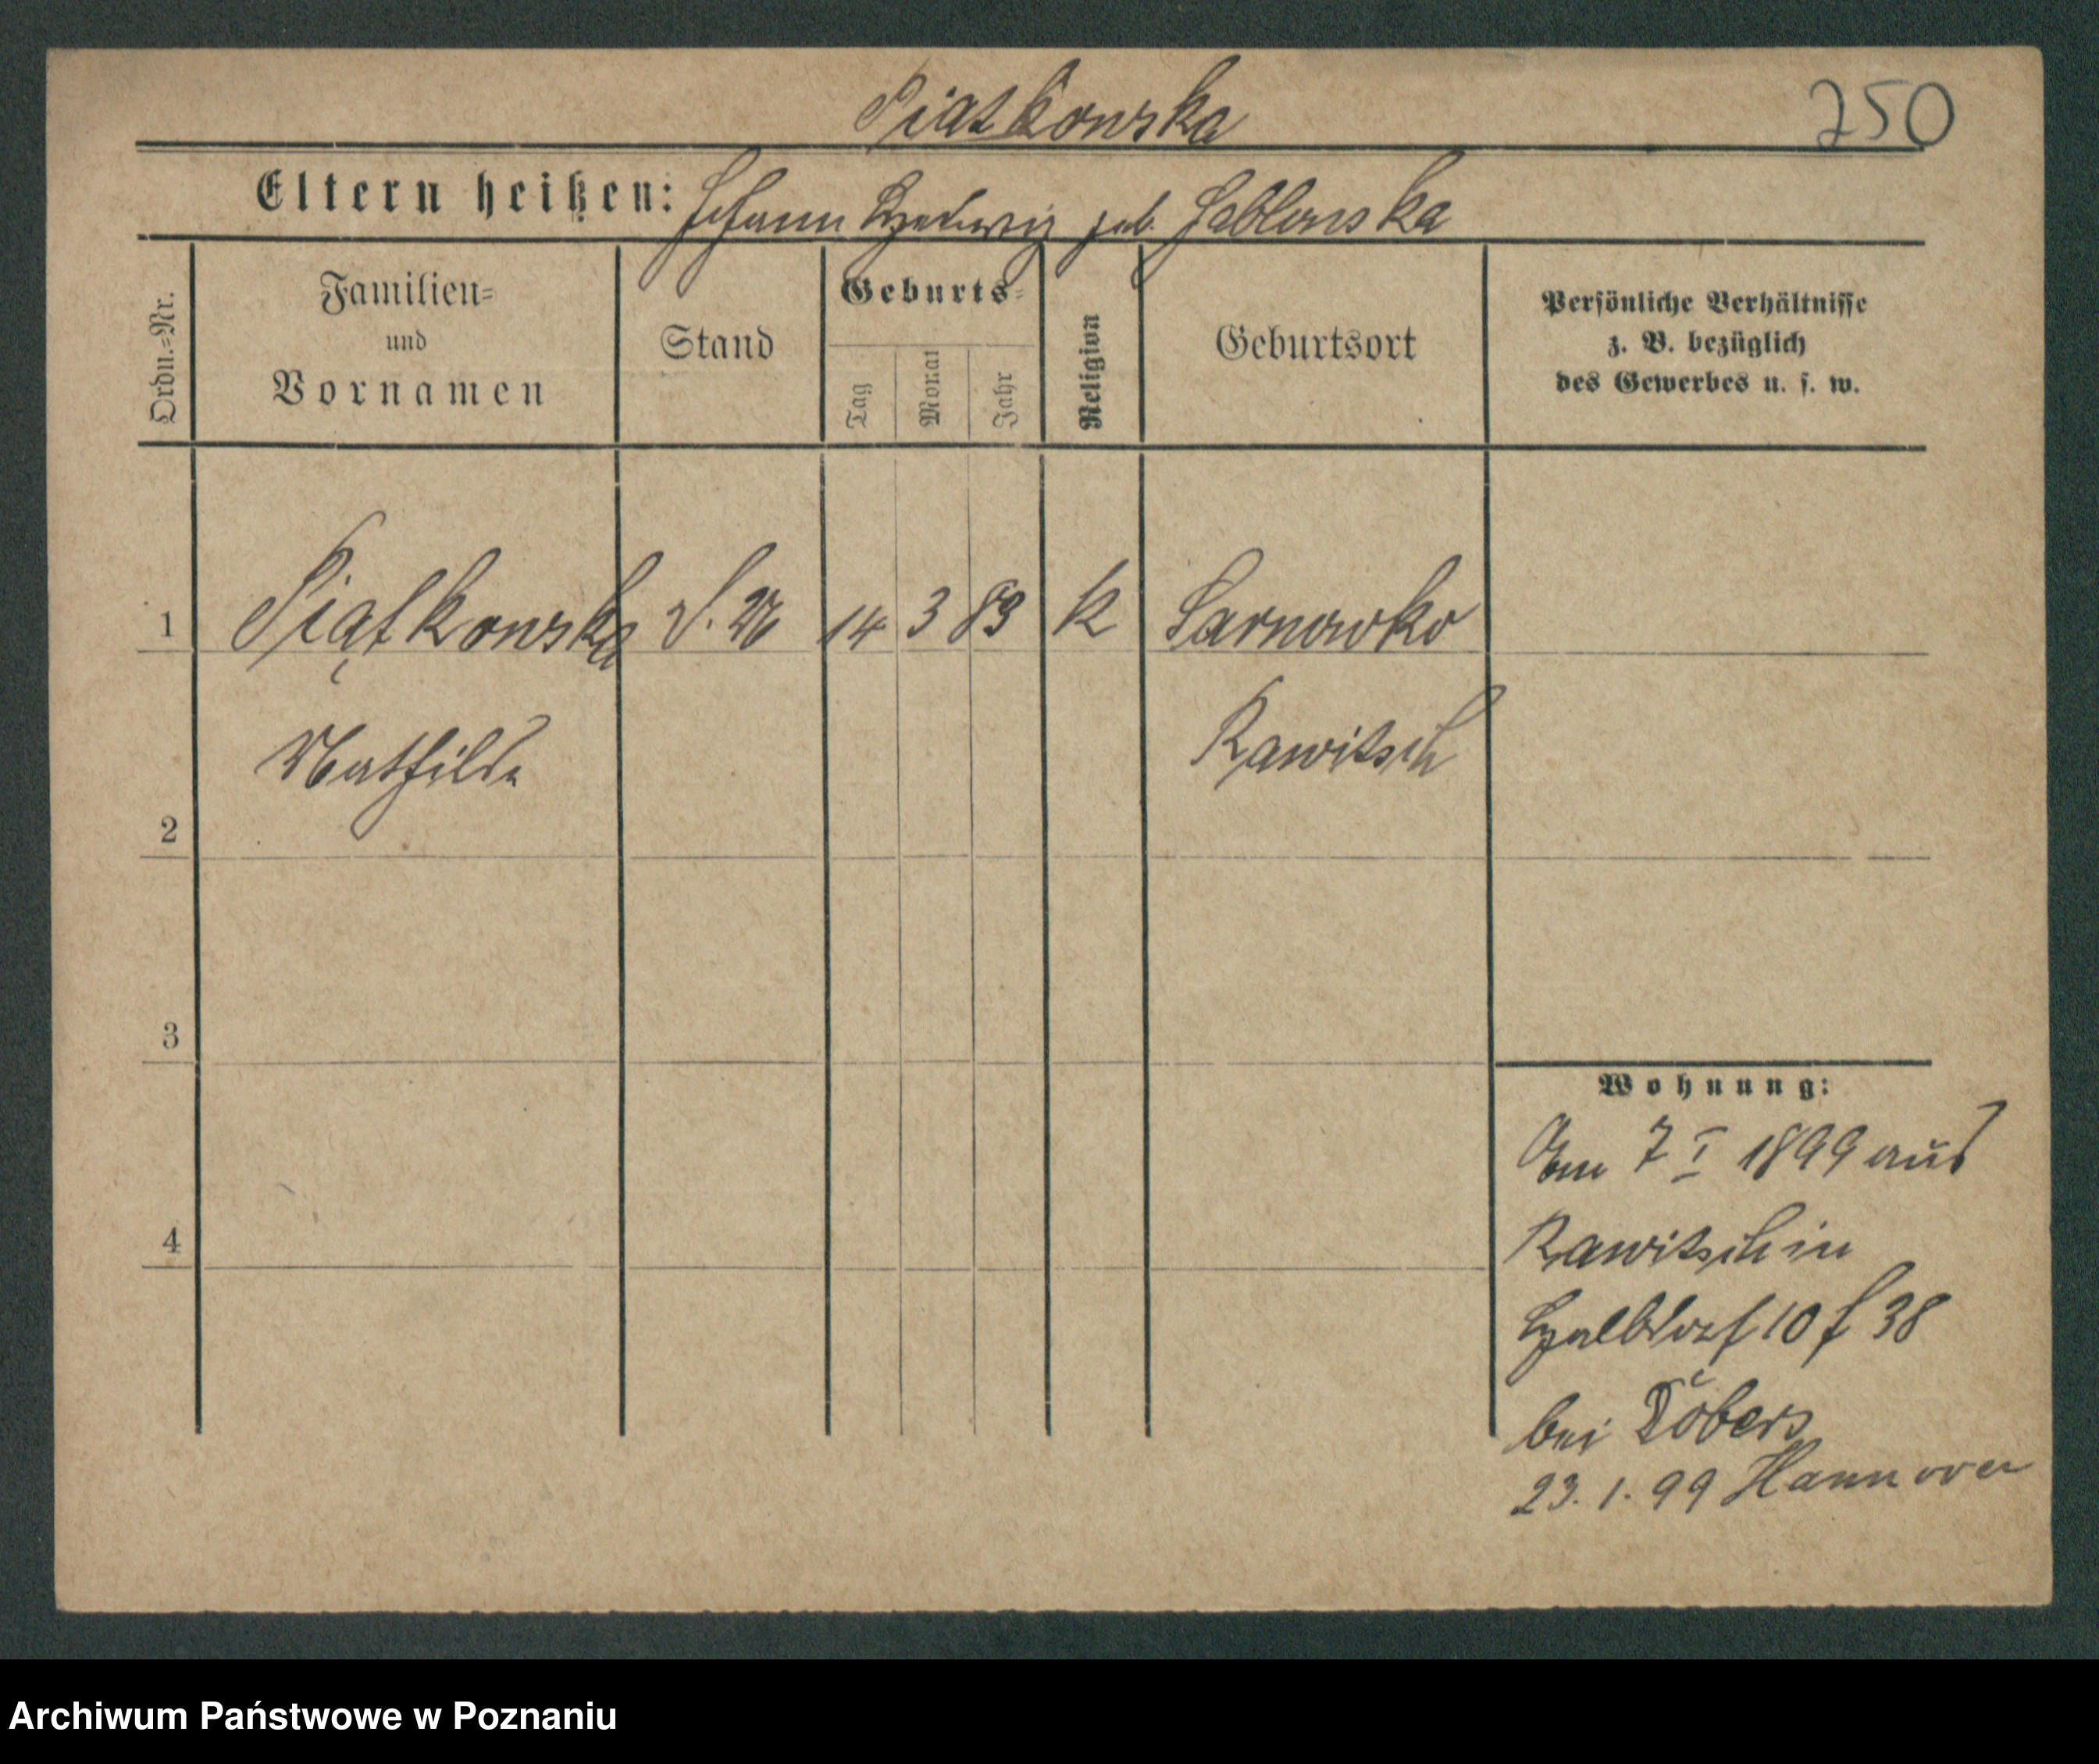 Piatkowska
750
Eltern heißen: Johann Hedwig geb. Jablonska
Ordn.-Nr.
Familien-
und
Vornamen
Stand
Geburts-
Tag
Monat
Jahr
Religion
Geburtsort
Persönliche Verhältnisse
z. B. bezüglich
des Gewerbes u. s. w.
1 Piątkowska 14 3 83 k Sarnowko
Mathilde Rawitsch
2
3
4
Wohnung:
Am 7 I 1899 aus
Rawitsch in
Halbdorf 10 f 38
bei Döbers
23. 1. 99 Hannover
Archiwum Państwowe w Poznaniu